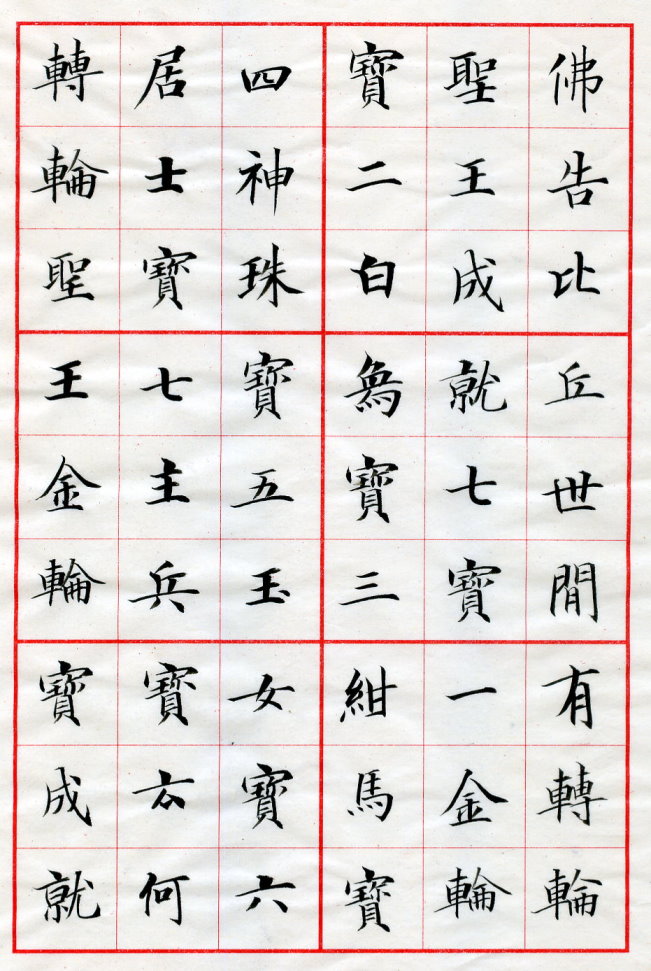 佛告比丘世閒有轉輪
聖王成就七寶一金輪
寶二白象寶三紺馬寶
四神珠寶五玉女寶六
居士寶七主兵寶云何
轉輪聖王金輪寶成就